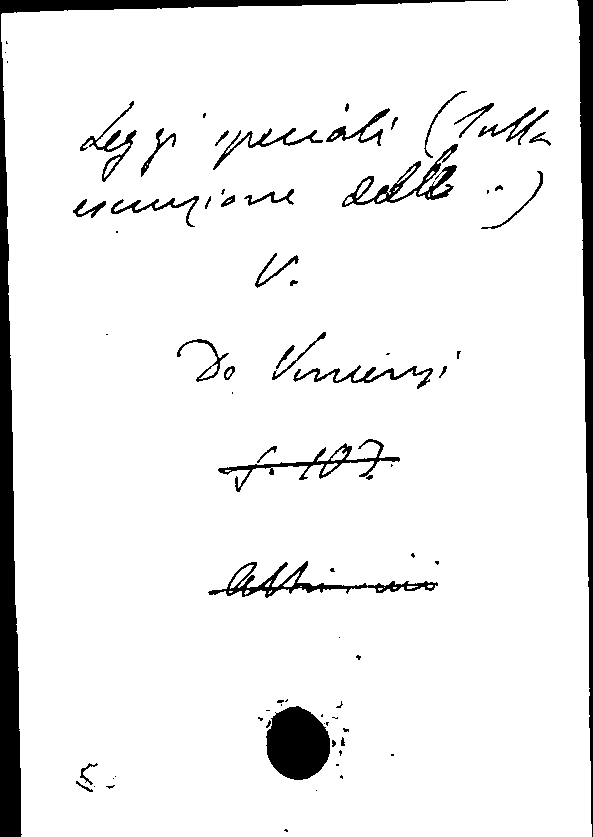 Leggi speciali (sulla
esecuzione delle ..)
V.
De Vincenzi
f. 107.
5.